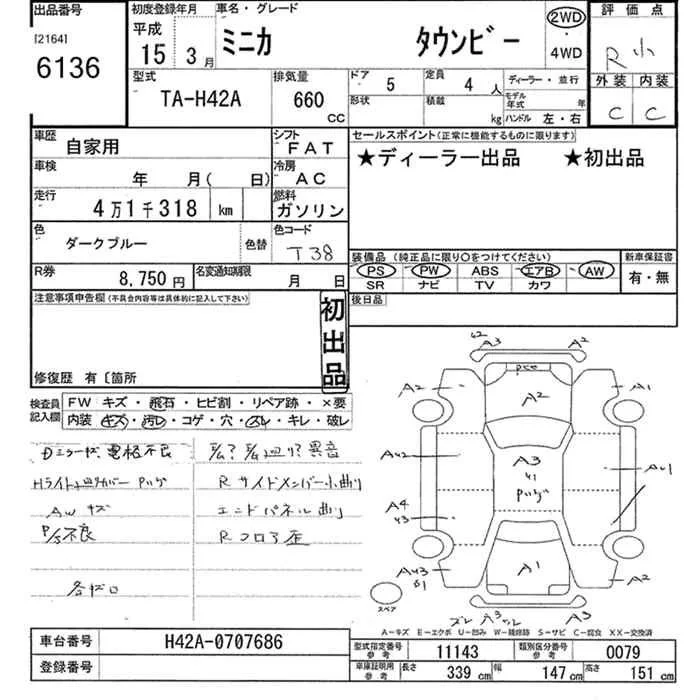 出品番号
[2164]
6136
初度登録年月
平成
15 3月
車名・グレード
ミニカ タウンビー
2WD
・
4WD
評価点
R 小
外装 内装
C C
型式
TA-H42A
排気量
660
CC
ドア 5
形状
定員 4 人
積載 kg
ディーラー・並行
モデル年式 年
ハンドル 左・右
車歴
自家用
シフト
FAT
車検
年 月( 日)
冷房
AC
走行
4万1千318 km
燃料
ガソリン
色
ダークブルー
色替
色コード
T38
R券
8,750円
名変通知期限
月 日
セールスポイント(正常に機能するものに限ります)
★ディーラー出品 ★初出品
装備品 (純正品に限り○をつけてください)
PS PW ABS エアB AW
SR ナビ TV カワ
新車保証書
有・無
注意事項申告欄(不具合内容等は具体的に記入して下さい)
初出品
後日品
修復歴 有〔箇所
検査員
記入欄
FW キズ・飛石・ヒビ割・リペア跡・×要
内装・キズ・汚レ・コゲ・穴・スレ・キレ・破レ
電格不良
異音
Rサイドメンバー小曲り
AWキズ
エンドパネル曲り
P/S不良
Rフロア歪
各キズ
A3
A2
A2
A2
A1
A3
A4
A1
A2
A3
A3
スペア
A-キズ E-エクボ U-凹み W-補修跡 S-サビ C-腐食 XX-交換済
車台番号
H42A-0707686
登録番号
型式指定番号
参考
11143
類別区分番号
参考
0079
車庫証明用
参考
長さ 339 cm
幅 147 cm
高さ 151 cm